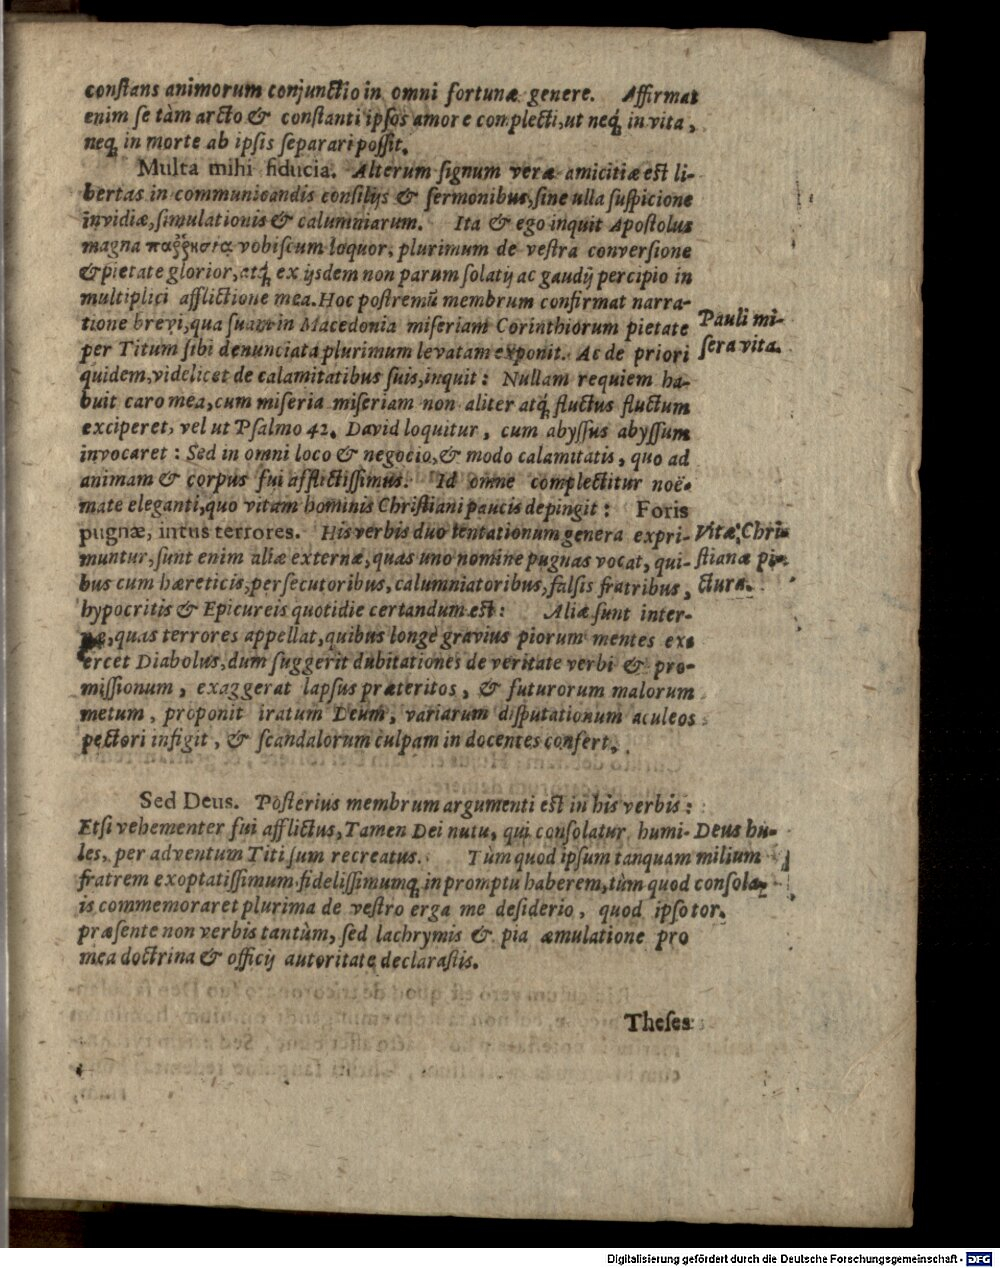 constans animorum conjunctio in omni fortunæ genere. Affirmat
enim se tàm arcto & constanti ipsos amore complecti, ut neq; in vita,
neq; in morte ab ipsis separari possit.
Multa mihi fiducia. Alterum signum veræ amicitiæ est li-
bertas in communicandis consilijs & sermonibus, sine ulla suspicione
invidiæ, simulationis & calumniarum. Ita & ego inquit Apostolus
magna παῤῥησία vobiscum loquor, plurimum de vestra conversione
& pietate glorior, atq; ex ijsdem non parum solatij ac gaudij percipio in
multiplici afflictione mea. Hoc postremũ membrum confirmat narra-
tione brevi, qua suam in Macedonia miseriam Corinthiorum pietate
per Titum sibi denunciata plurimum levatam exponit. Ac de priori
quidem, videlicet de calamitatibus suis, inquit: Nullam requiem ha-
buit caro mea, cum miseria miseriam non aliter atq; fluctus fluctum
exciperet, vel ut Psalmo 42. David loquitur, cum abyssus abyssum
invocaret: Sed in omni loco & negocio, & modo calamitatis, quo ad
animam & corpus fui afflictissimus. Id omne complectitur noë-
mate eleganti, quo vitam hominis Christiani paucis depingit: Foris
pugnæ, intus terrores. His verbis duo tentationum genera expri-
muntur, sunt enim aliæ externæ, quas uno nomine pugnas vocat, qui-
bus cum hæreticis, persecutoribus, calumniatoribus, falsis fratribus,
hypocritis & Epicureis quotidie certandum est: Aliæ sunt inter-
næ, quas terrores appellat, quibus longè gravius piorum mentes ex-
ercet Diabolus, dum suggerit dubitationes de veritate verbi & pro-
missionum, exaggerat lapsus præteritos, & futurorum malorum
metum, proponit iratum Deum, variarum disputationum aculeos
pectori infigit, & scandalorum culpam in docentes confert.
Pauli mi-
sera vita.
Vitæ Chri-
stianæ pi-
ctura.
Sed Deus. Posterius membrum argumenti est in his verbis:
Etsi vehementer fui afflictus, Tamen Dei nutu, qui consolatur humi-
les, per adventum Titi sum recreatus. Tùm quod ipsum tanquam
fratrem exoptatissimum fidelissimumq; in promptu haberem, tùm quod
is commemoraret plurima de vestro erga me desiderio, quod ipso
præsente non verbis tantùm, sed lachrymis & pia æmulatione pro
mea doctrina & officij autoritate declarastis.
Deus hu-
milium
consola-
tor.
Theses
Digitalisierung gefördert durch die Deutsche Forschungsgemeinschaft - DFG